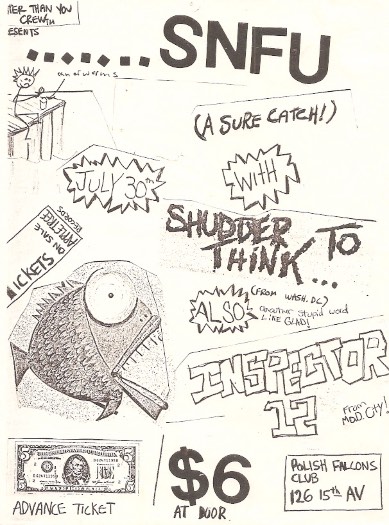 TER THAN YOU
CREW TM
ESENTS
.......SNFU
can of worms
(A SURE CATCH!)
JULY 30th
WITH
SHUDDER TO
THINK...
(FROM WASH. DC)
ALSO
another stupid word
LIKE GLAD!
TICKETS
ON SALE
APPLETREE
RECORDS
INSPECTOR
12
from
MOD CITY!
ADVANCE TICKET
$6
AT DOOR
POLISH FALCONS
CLUB
126 15th AV